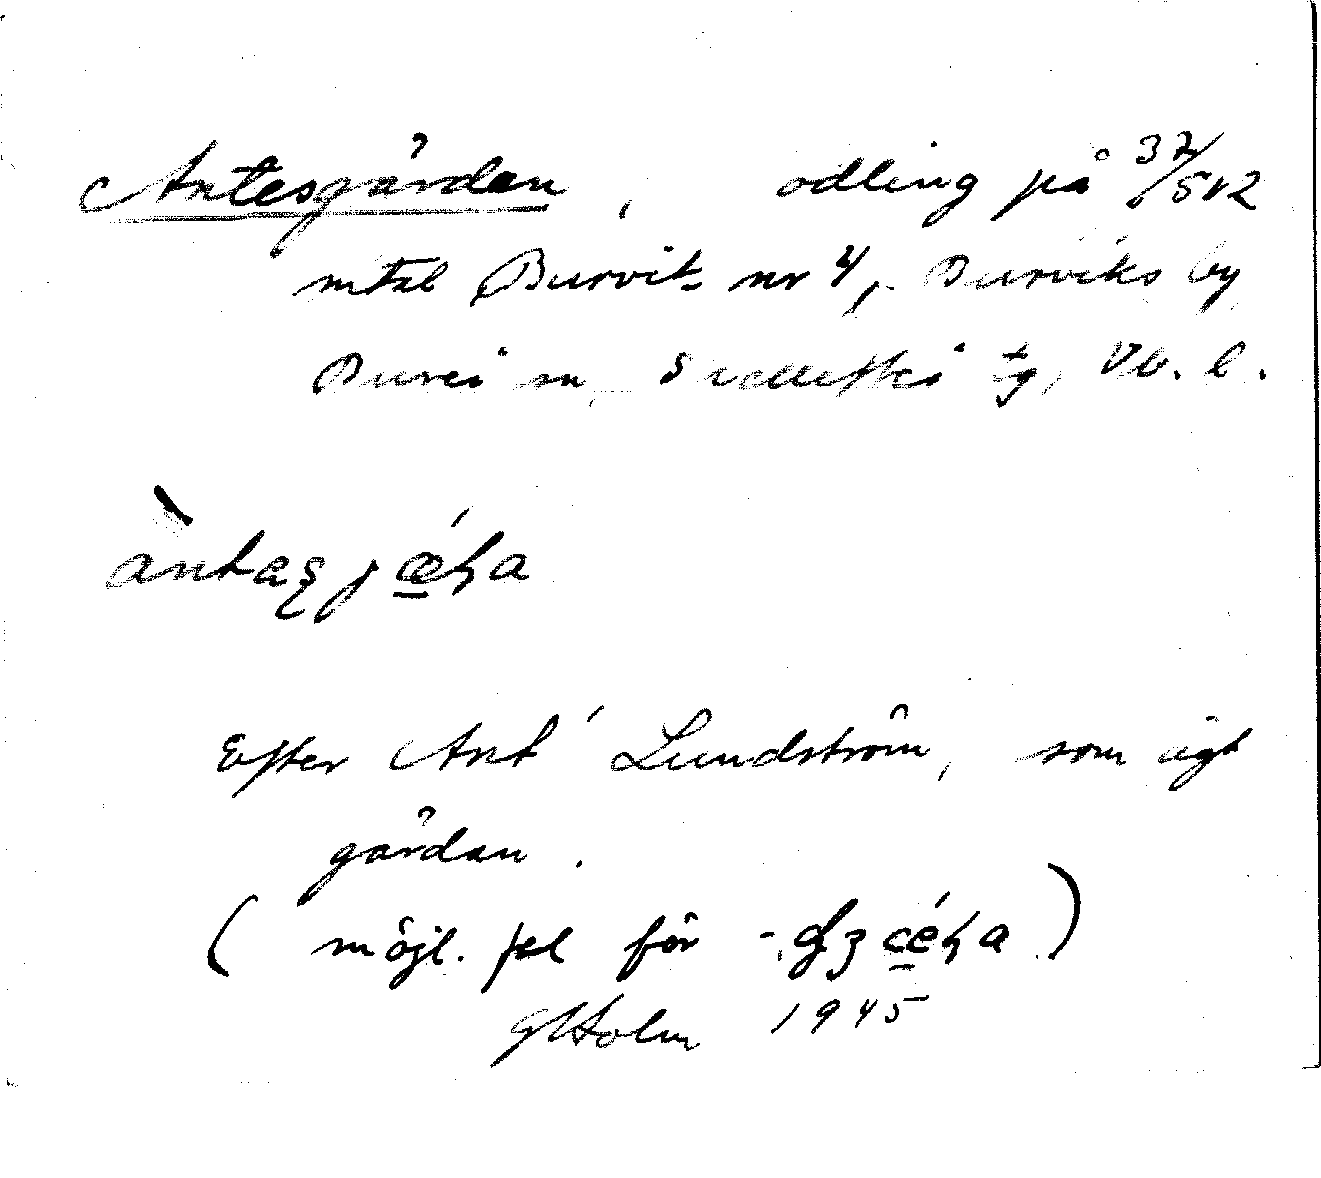 Antesgården, odling på 37/512
mtal Burvik nr 4, Burviks by
Bureå sn, Skellefteå tg, Vb. l.
Efter Ant Lundström, som ägt
gården.
(möjl. fel för
GHolm 1945